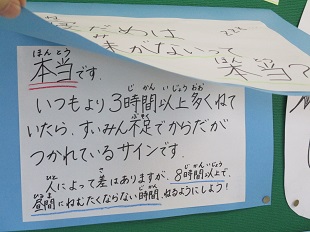 寝だめは
意味がないって
本当?
本当です。
いつもより3時間以上多くねて
いたら、すいみん不足でからだが
つかれているサインです。
人によって差はありますが、8時間以上で、
昼間にねむたくならない時間、ねるようにしよう!